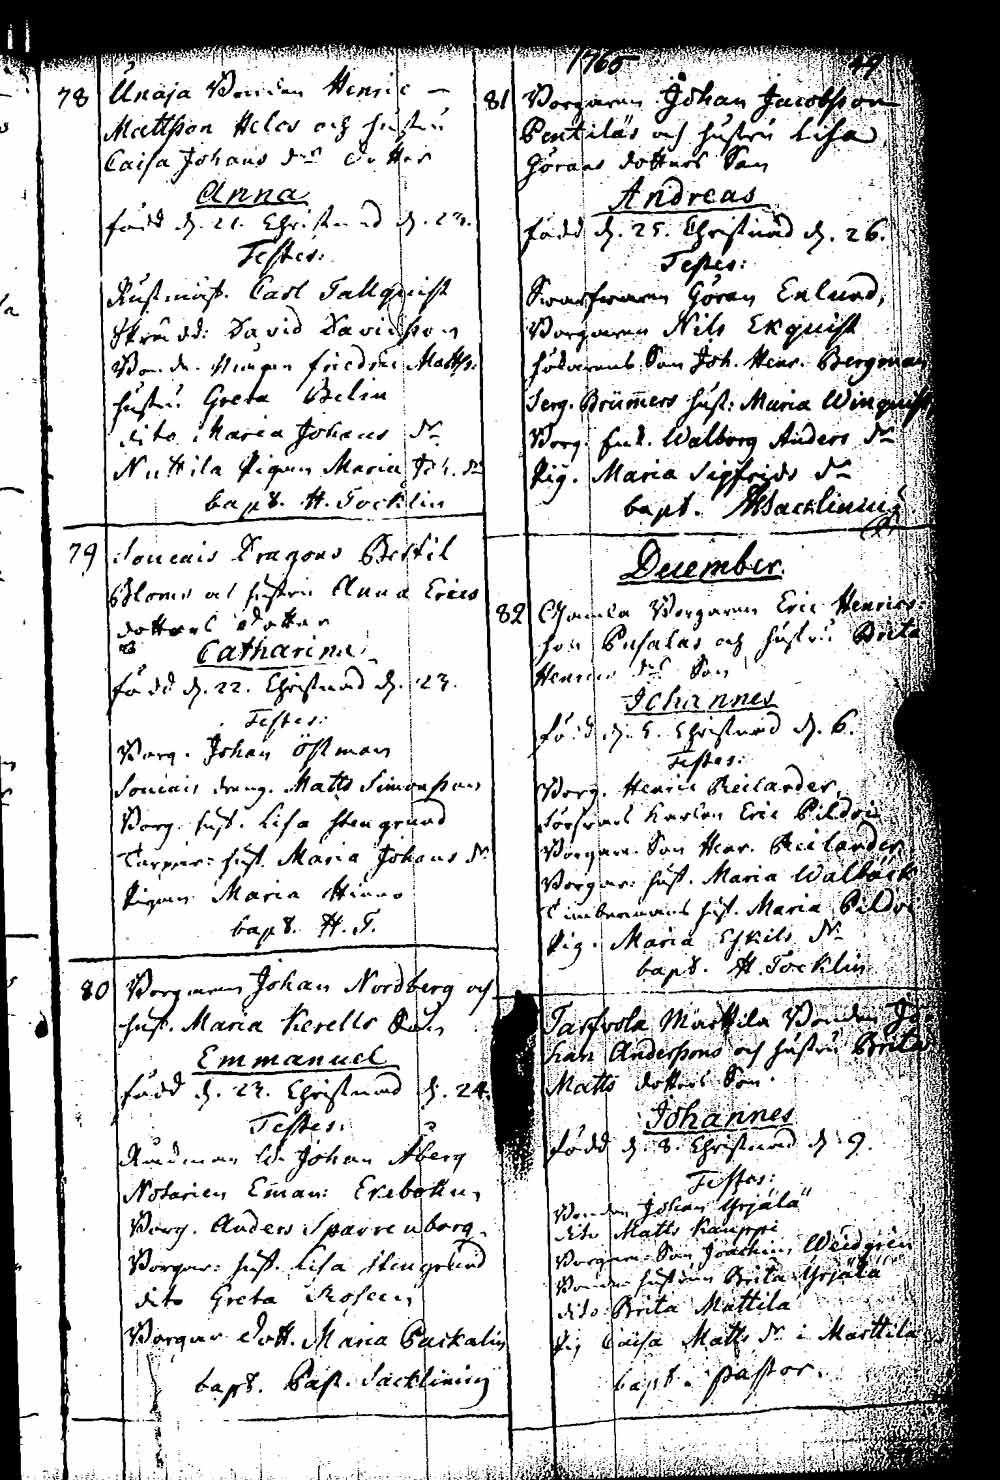 1765 49
78 Unaja Bonden Henric
Mattsson Heles och hustru
Caisa Johans drs dotter
Anna
född d. 21. Christnad d. 23.
Testes:
Rustmäst. Carl Tallquist
Skrädd: David Davidsson
Hustru Greta Belin
dito Maria Johans dr
Nuttila Pigan Maria Joh. dr
bapt. H. Tocklin
79 Dragons Bertil
Bloms och hustru Anna Erics
dotters dotter
Catharina
född d. 22. Christnad d. 23.
Testes:
Borg. Johan Östman
dreng. Matts Simonsson
Borg. hust. Lisa Stengrund
hust. Maria Johans dr
Pigan Maria
bapt. H. T.
80 Borgaren Johan Nordberg och
hust. Maria Kerells Son
Emmanuel
född d. 23. Christnad d. 24.
Testes:
Rådman Johan Åberg
Notarien Eman: Ekebohm
Borg. Anders Sparrenborg
Borgar: hust. Lisa Stengrund
dito Greta Rosen
Borgar dott. Maria Packalin
bapt. Past. Sacklinius
81 Borgaren Johan Jacobsson
Pentiläs och hustru Lisa
Görans dotters Son
Andreas
född d. 25. Christnad d. 26.
Testes:
Swarfwaren Göran Enlund,
Borgaren Nils Ekquist
Son Joh. Henr. Bergman
Serg. Brummers hust: Maria Winquist
Borg. Walborg Anders dr
Pig. Maria Sigfrids dr
bapt. Sacklinius
December.
82 Gamla Borgaren Eric Henrics:
son och hustru Brita
Henrics drs Son
Johannes
född d. 5. Christnad d. 6.
Testes:
Borg. Henric Reilander,
Karlen Eric Pildri
Borgare Son Henr. Reilander
Borgar: hust. Maria Walbäck
Timbermans hust. Maria Pildri
Pig. Maria Eskils dr
bapt. H. Tocklin
Marttila Bonden Jo-
han Anderssons och hustru Brita
Matts dotters Son
Johannes
född d. 8. Christnad d. 9.
Testes:
Bonden Johan Yrjälä
dito Matts Kauppi
Borgare Son Joachim Weidgren
Bonde hustrun Brita Yrjälä
dito Brita Mattila
Pig Caisa Matts dr i Marttila
bapt. Pastor.